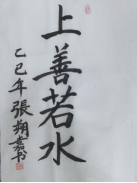 上善若水
乙巳年 張翔嘉书